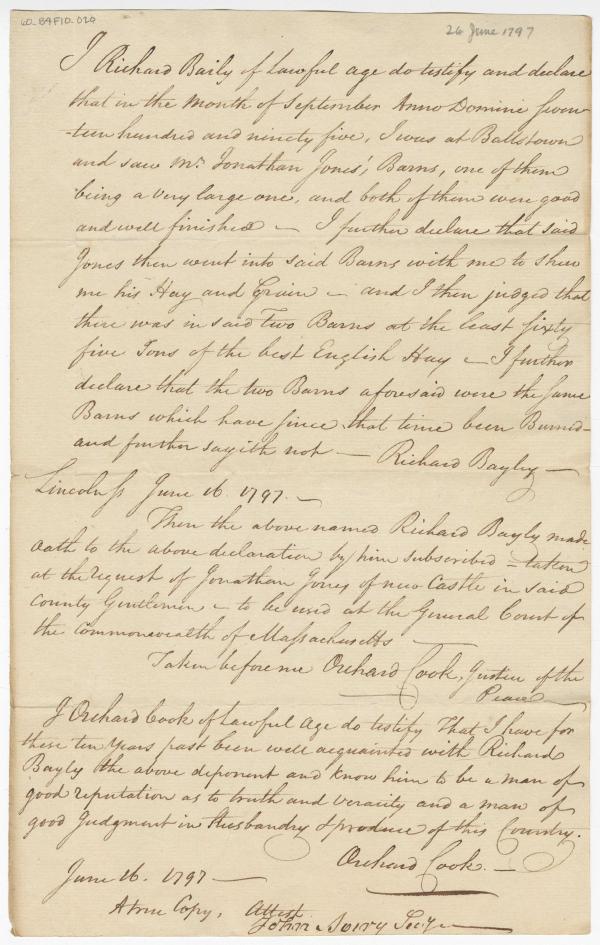 60_B9F10_029
26 June 1797
I Richard Baily of Lawful age do testify and declare
that in the Month of September Anno Domini Seven-
-teen hundred and ninety five, I was at Ballstown
and saw Mr. Jonathan Jones', Barns, one of them
being a very large one, and both of them were good
and well finished — I further declare that said
Jones then went into said Barns with me to shew
me his Hay and Grain — and I then judged that
there was in said Two Barns at the least sixty
five Tons of the best English Hay — I further
declare that the two Barns aforesaid were the same
Barns which have since that time been Burned—
and further sayith not — Richard Bayley —
Lincoln Ss June 16. 1797. —
Then the above named Richard Bayly made
oath to the above declaration by him subscribed = taken
at the request of Jonathan Jones of new Castle in said
County Gentlemen — to be used at the General Court of
the Commonwealth of Massachusetts —
Taken before me Orchard Cook, Justice of the
Peace
I Orchard Cook of Lawful Age do testify That I have for
these ten Years past been well acquainted with Richard
Bayly the above deponent and know him to be a man of
good reputation as to truth and veracity and a man of
good Judgment in Husbandry & produce of this Country.
Orchard Cook. —
June 16. 1797 —
A true Copy, Attest.
John Avery Secy